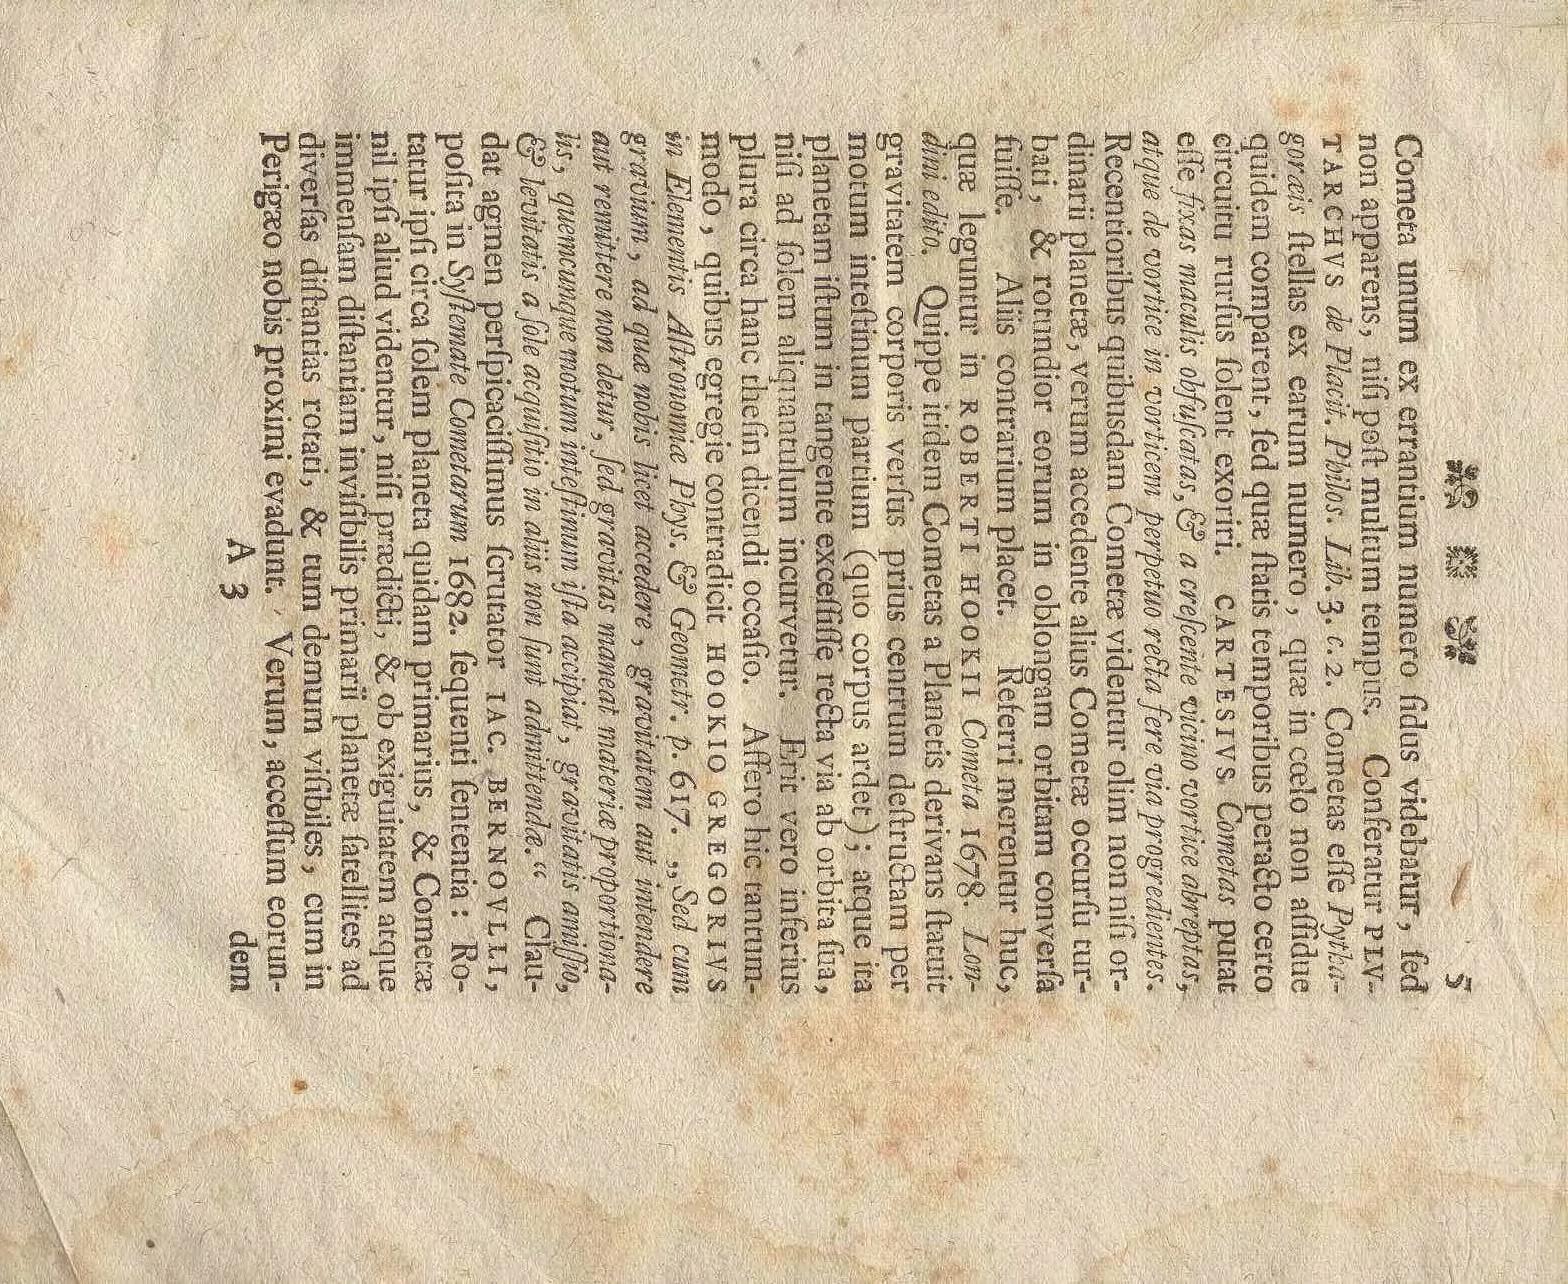 5
Cometa unum ex errantium numero ſidus videbatur, ſed
non apparens, niſi poſt multum tempus. Conferatur PLV-
TARCHVS de Placit. Philos. Lib. 3. c. 2. Cometas eſſe Pytha-
goræis ſtellas ex earum numero, quæ in cœlo non aſſidue
quidem comparent, ſed quæ ſtatis temporibus peracto certo
circuitu rurſus ſolent exoriri. CARTESIVS Cometas putat
eſſe fixas maculis obfuſcatas, & a creſcente vicino vortice abreptas,
atque de vortice in vorticem perpetuo recta fere via progredientes.
Recentioribus quibusdam Cometæ videntur olim non niſi or-
dinarii planetæ, verum accedente alius Cometæ occurſu tur-
bati, & rotundior eorum in oblongam orbitam converſa
fuiſſe. Aliis contrarium placet. Referri merentur huc,
quæ leguntur in ROBERTI HOOKII Cometa 1678. Lon-
dini edito. Quippe itidem Cometas a Planetis derivans ſtatuit
gravitatem corporis verſus prius centrum deſtructam per
motum inteſtinum partium (quo corpus ardet); atque ita
planetam iſtum in tangente exceſſiſſe recta via ab orbita ſua,
niſi ad ſolem aliquantulum incurvetur. Erit vero inferius
plura circa hanc theſin dicendi occaſio. Aſſero hic tantum-
modo, quibus egregie contradicit HOOKIO GREGORIVS
in Elementis Aſtronomiæ Phys. & Geometr. p. 617. „Sed cum
gravium, ad quæ nobis licet accedere, gravitatem aut intendere
aut remittere non detur, ſed gravitas maneat materiæ proportiona-
lis, quemcunque motum inteſtinum iſta accipiat, gravitatis amiſſio,
& levitatis a ſole acquiſitio in aliis non ſunt admittendæ.“ Clau-
dat agmen perſpicaciſſimus ſcrutator IAC. BERNOVLLI,
poſita in Syſtemate Cometarum 1682. ſequenti ſententia: Ro-
tatur ipſi circa ſolem planeta quidam primarius, & Cometæ
nil ipſi aliud videntur, niſi prædicti, & ob exiguitatem atque
immenſam diſtantiam inviſibilis primarii planetæ ſatellites ad
diverſas diſtantias rotati, & tum demum viſibiles, cum in
Perigæo nobis proximi evadunt. Verum, acceſſum eorun-
A 3
dem